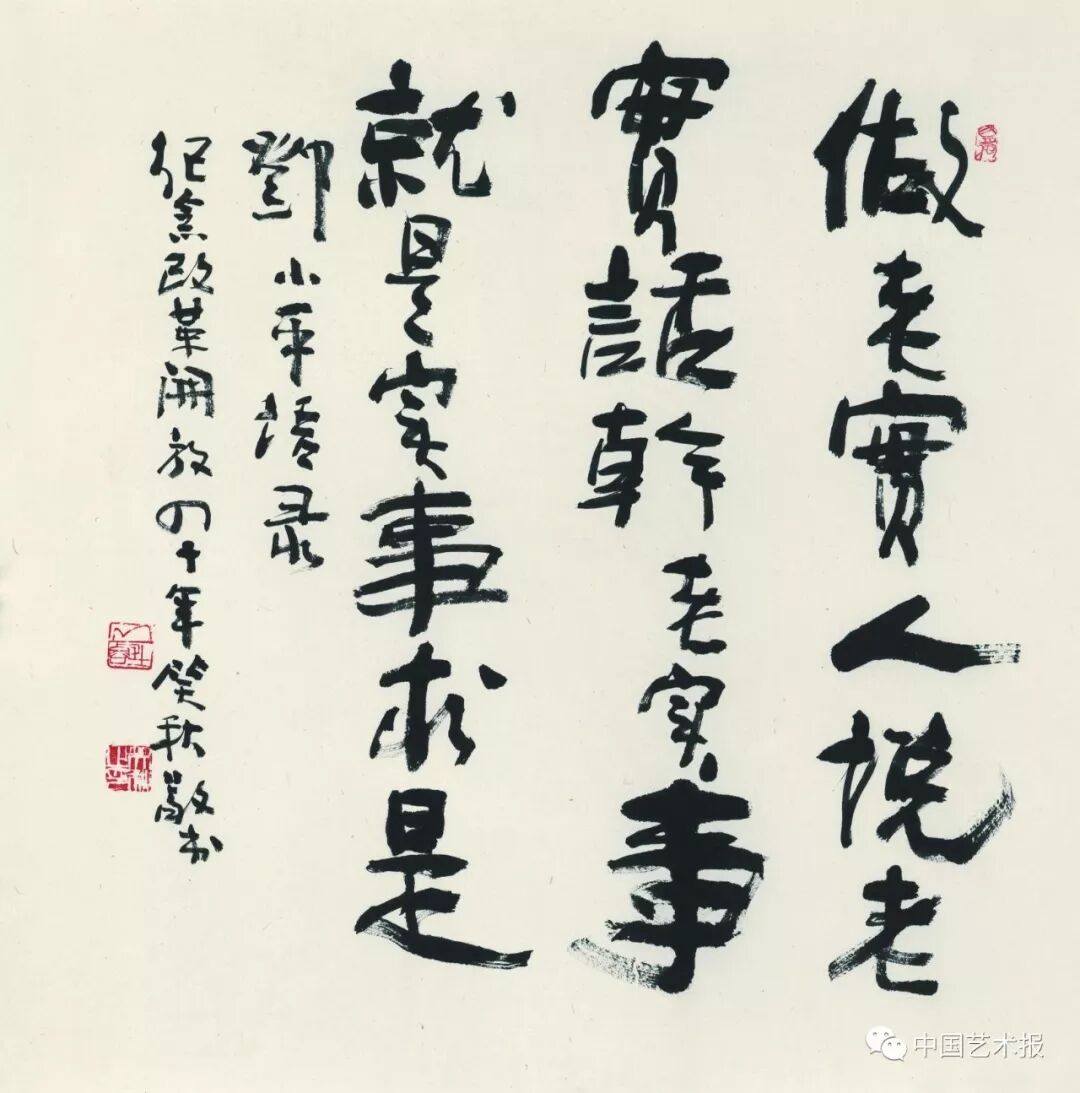 做老實人説老
實話幹老实事
就是实事求是
鄧小平語录
紀念改革開放四十年秋敬书
中国艺术报